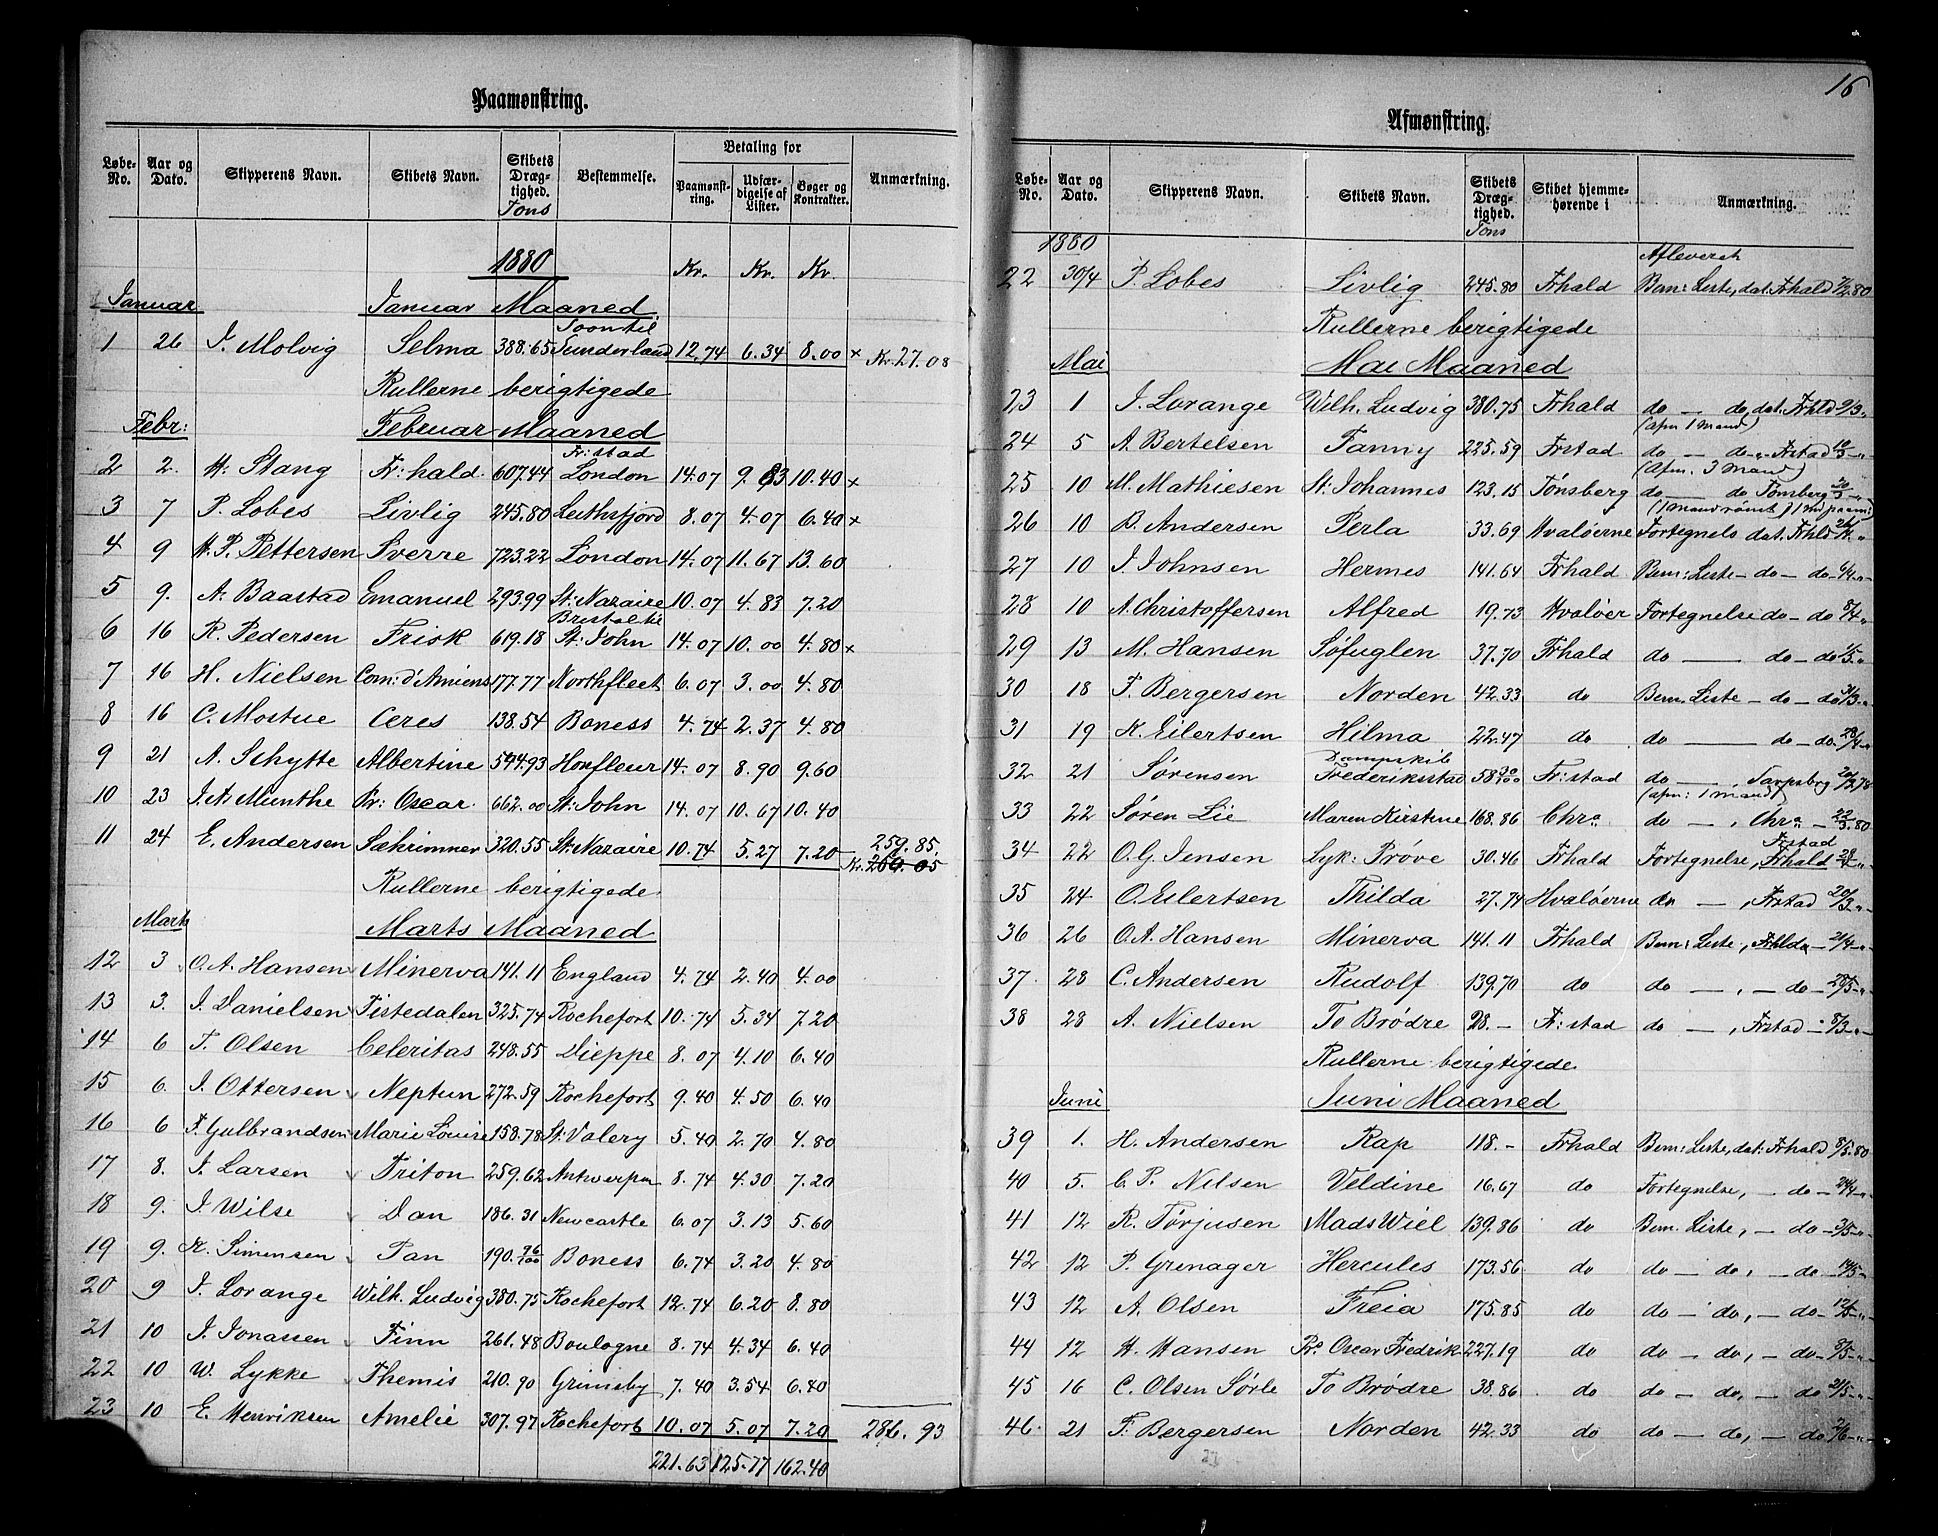 Paamønstring.
Løbe-No. | Aar og Dato. | Skipperens Navn. | Skibets Navn. | Skibets Dræg-tighed. Tons | Bestemmelse. | Betaling for | Paamønst-ring. | Udfær-digelse af Lister. | Bøger og Kontrakter. | Anmærkning.
1880 Kr. Kr. Kr
Januar Januar Maaned
Soon til
1 26 J. Molvig Selma 388.65 Sunderland 12.74 6.34 8.00 × Kr. 27.08
Rullerne berigtigede
Febr: Februar Maaned
Fr:stad
2 2. H. Stang Fr:hald 607.44 London 14.07 9.83 10.40 ×
3 7 P. Lobes Livlig 245.80 Leithsfjord 8.07 4.07 6.40 ×
4 9 H. P. Pettersen Sverre 723.22 London 14.07 11.67 13.60
5 9. A. Baastad Emanuel 293.99 St: Nazaire 10.07 4.83 7.20
Bristol til
6 16 R. Pedersen Frisk 619.18 St: John 14.07 10.00 4.80 ×
7 16 H. Nielsen Com: d'Amiens 177.77 Northfleet 6.07 3.00 4.80
8 16 C. Mostue Ceres 138.54 Boness 4.74 2.37 4.80
9 21 A. Schytte Albertine 594.93 Honfleur 14.07 8.90 9.60
10 23 J. A. Munthe Pr: Oscar 662.00 St: John 14.07 10.67 10.40
11 24 E. Andersen Sæhrimner 320.55 St: Nazaire 10.74 5.27 7.20 259.85.
Kr. 269.05
Rullerne berigtigede
Marts Marts Maaned
12 3 O. A. Hansen Minerva 141.11 England 4.74 2.40 4.00
13 3. J. Danielsen Tistedalen 325.74 Rochefort 10.74 5.34 7.20
14 6 T. Olsen Celeritas 248.55 Dieppe 8.07 4.10 6.40
15 6. J. Ottersen Neptun 272.59 Rochefort 9.40 4.50 6.40
16 6 F. Gulbrandsen Marie Louise 158.78 St: Valery 5.40 2.70 4.80
17 8. J. Larsen Triton 259.62 Antwerpen 8.74 4.30 7.20
18 9. J. Wilse Dan 186.31 Newcastle 6.07 3.13 5.60
19 9. K. Simensen Pan 190.96/100 Boness 6.74 3.20 4.80
20 9 J. Lorange Wilh. Ludvig 380.75 Rochefort 12.74 6.20 8.80
21 10 J. Jonassen Finn 261.48 Boulogne 8.74 4.34 6.40
22 10 W. Lykke Themis 210.90 Grimsby 7.40 3.54 6.40
23 10 E. Henriksen Amelie 307.97 Rochefort 10.07 5.07 7.20 286.93
221.63 125.77 162.40
16
Afmønstring.
Løbe-No. | Aar og Dato. | Skipperens Navn. | Skibets Navn. | Skibets Dræg-tighed. Tons | Skibet hjemme-hørende i | Anmærkning.
1880 Afleveret
22 30/4 P. Lobes Livlig 245.80 Frhald Bem: Liste, dat. Frhald 7/2.80
Rullerne berigtigede
Mai Mai Maaned
23 1 J. Lorange Wilh. Ludvig 380.75 Frhald do — do, dat. Frhld 9/3 "
(afm 1 mand)
24 5 A. Bertelsen Fanny 225.59 Frstad do — do " Frstad 10/3 "
(Afm. 3 Mand)
25 10 M. Mathiesen St: Johannes 123.15 Tønsberg do — do Tønsberg 30/3 "
(1 mand rømt)
26 10 B. Andersen Perla 33.69 Hvaløerne Fortegnels dat. Frhld
27 10 J. Johnsen Hermes 141.64 Frhald Bem: Liste - do - do 6/4 "
28 10 A. Christoffersen Alfred 19.73 Hvaløer Fortegnelse do - do 8/4 "
29 13 M. Hansen Søfuglen 37.70 Frhald do — do - do 1/5 "
30 18 F. Bergersen Norden 42.33 do Bem. Liste - do - do 31/3 "
31 19 K. Eilertsen Hilma 22.47 do do — do - do 28/4 "
Dampskib
32 21 Sørensen Frederiksstad 58 30/100 Fr:stad do — Sarpsborg 20/3.78
(afm: 1 mand)
33 22 Søren Lie Maren Kirstine 168.86 Chra do — , Chra - 22/3.80
Frstad
34 22 O. G. Jensen Lyk: Prøve 30.46 Frhald Fortegnelse, Frhald
35 24 O. Eilertsen Thilda 27.74 Hvaløerne do — , Frstad 20/3 "
36 26 O. A. Hansen Minerva 141.11 Frhald Bem: Liste, Frhld - 21/4 "
37 28 C. Andersen Rudolf 139.70 do do — , — do - 20/5 "
38 28 A. Nielsen To Brødre 98. - Fr:stad do — , Frstad - 8/3 "
Rullerne berigtigede
Juni Juni Maaned
39 1. H. Andersen Rap 118. - Frhald Bem: Liste, dat: Frhald 8/5.80
40 5. C. P. Nilsen Veldine 16.67 do Fortegnelse, — do - 24/4 "
41 12 R. Tørjusen Mads Wiel 139.86 do Bem. Liste, — do - 3/5 "
42 12 P. Grenager Hercules 173.56 do do — do, — do - 14/5 "
43 12 A. Olsen Freia 175.85 do do — do, — do - 12/5 "
44 12 H. Hansen Pr. Oscar Fredrik 227.19 do do — do, — do - 8/5 "
45 16 C. Olsen Sørle To Brødre 38.86 do do — do, — do 21/5 "
46 21 F. Bergersen Norden 42.33 do do — do, — do 2/6 "